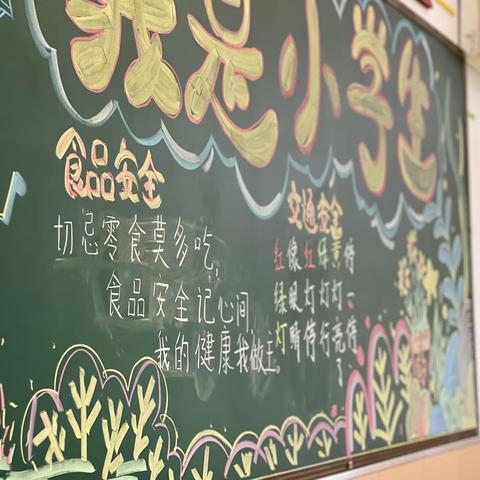 我是小学生
食品安全
切忌零食莫多吃，
食品安全记心间，
我的健康我做主。
交通安全
红绿灯
像眼睛
红灯停
绿灯行
黄灯亮了
停一停